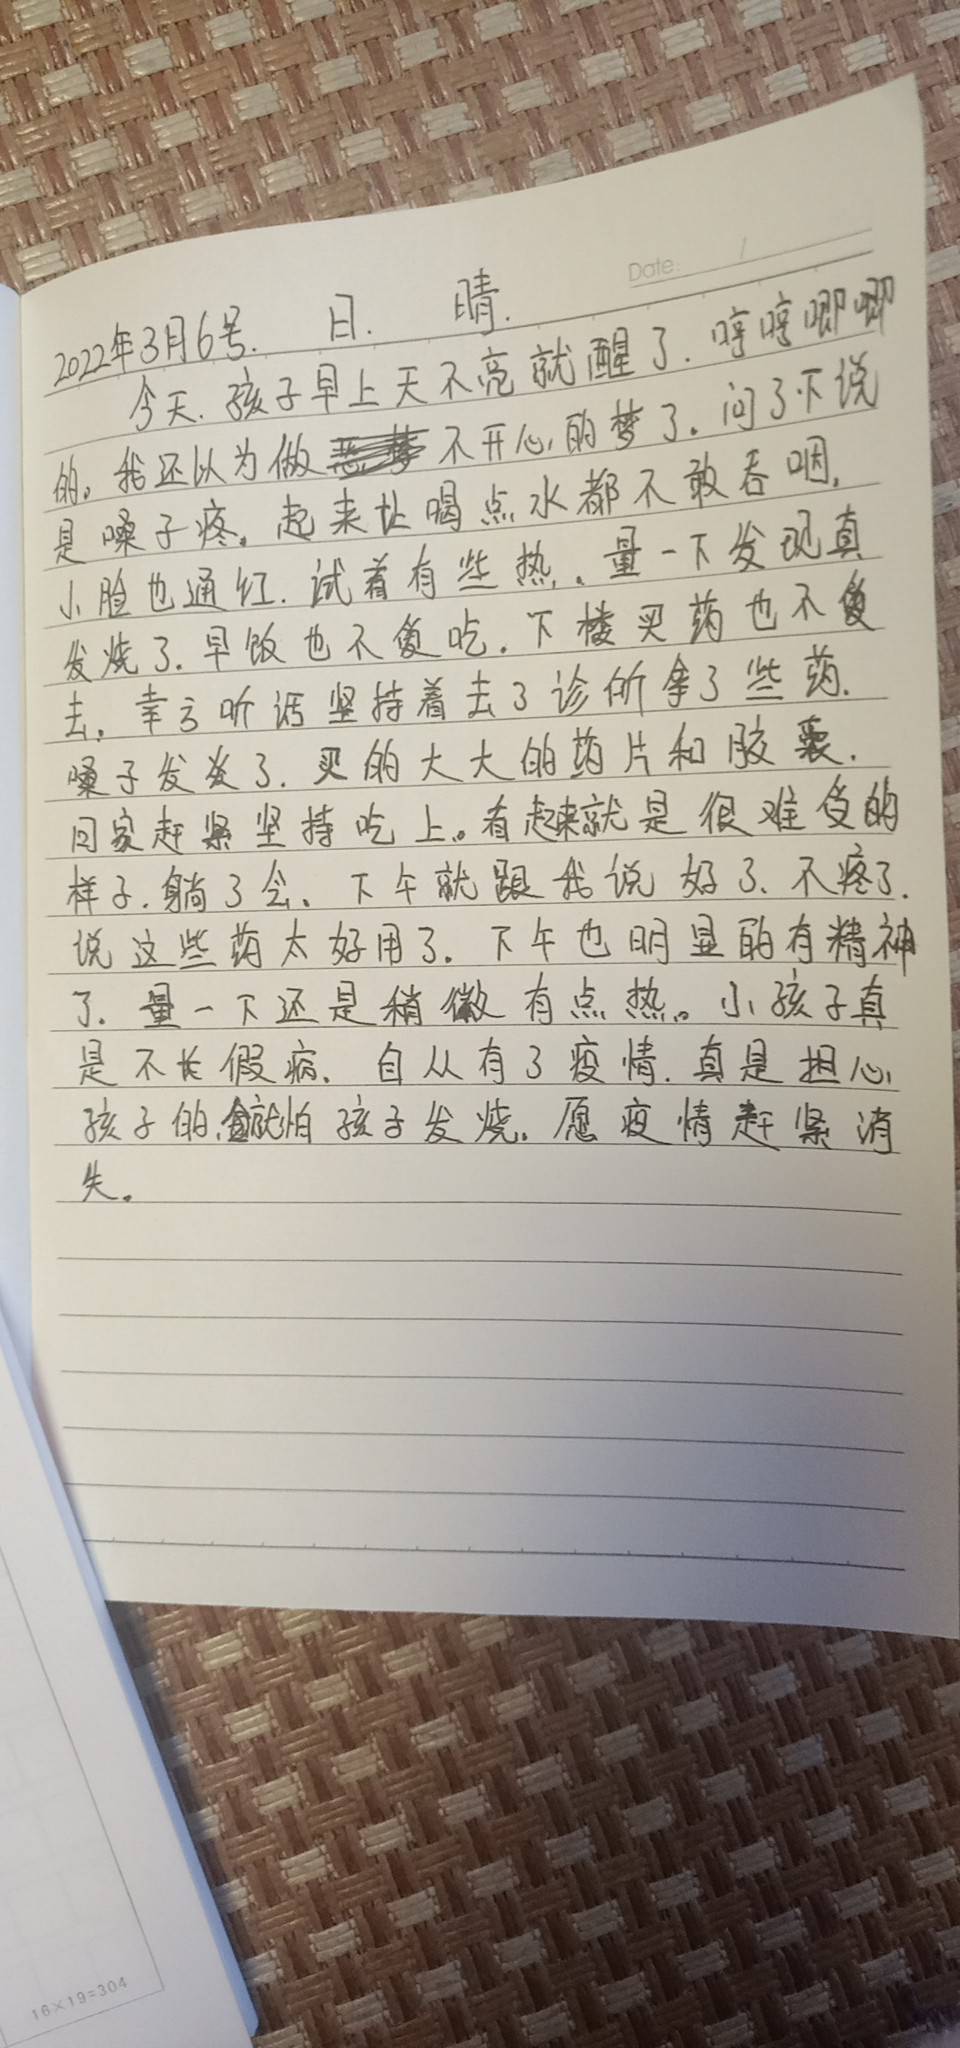 Date: /
2022年3月6号. 日. 晴.
今天.孩子早上天不亮就醒了.哼哼唧唧
的。我还以为做不开心的梦了.问了下说
是嗓子疼。起来让喝点水都不敢吞咽.
小脸也通红.试着有些热.量一下发现真
发烧了.早饭也不爱吃.下楼买药也不爱
去.幸亏听话坚持着去了诊所拿了些药.
嗓子发炎了.买的大大的药片和胶囊.
回家赶紧坚持吃上。看起来就是很难受的
样子.躺了会.下午就跟我说好了.不疼了.
说这些药太好用了.下午也明显的有精神
了.量一下还是稍微有点热。小孩子真
是不长假病.自从有了疫情.真是担心
孩子的.就怕孩子发烧.愿疫情赶紧消
失。
16×19=304